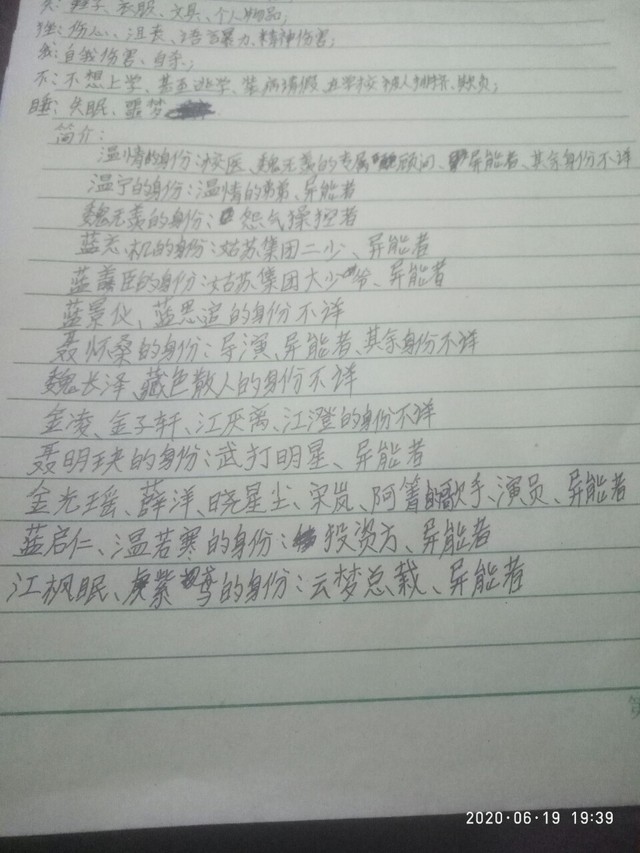 鞋子、衣服、文具、个人物品;
伤人、沮丧、语言暴力、精神伤害;
我:自我伤害、自杀;
不:不想上学、甚至逃学、装病请假、在学校被人排挤、欺负;
睡:失眠、噩梦
简介:
温情的身份:校医、魏无羡的专属顾问、异能者、其余身份不详
温宁的身份:温情的弟弟、异能者
魏无羡的身份:怨气操控者
蓝忘机的身份:姑苏集团二少、异能者
蓝曦臣的身份:姑苏集团大少爷、异能者
蓝景仪、蓝思追的身份不详
聂怀桑的身份:导演、异能者、其余身份不详
魏长泽、藏色散人的身份不详
金凌、金子轩、江厌离、江澄的身份不详
聂明玦的身份:武打明星、异能者
金光瑶、薛洋、晓星尘、宋岚、阿箐的歌手、演员、异能者
蓝启仁、温若寒的身份:投资方、异能者
江枫眠、虞紫鸢的身份:云梦总裁、异能者
2020·06·19 19:39